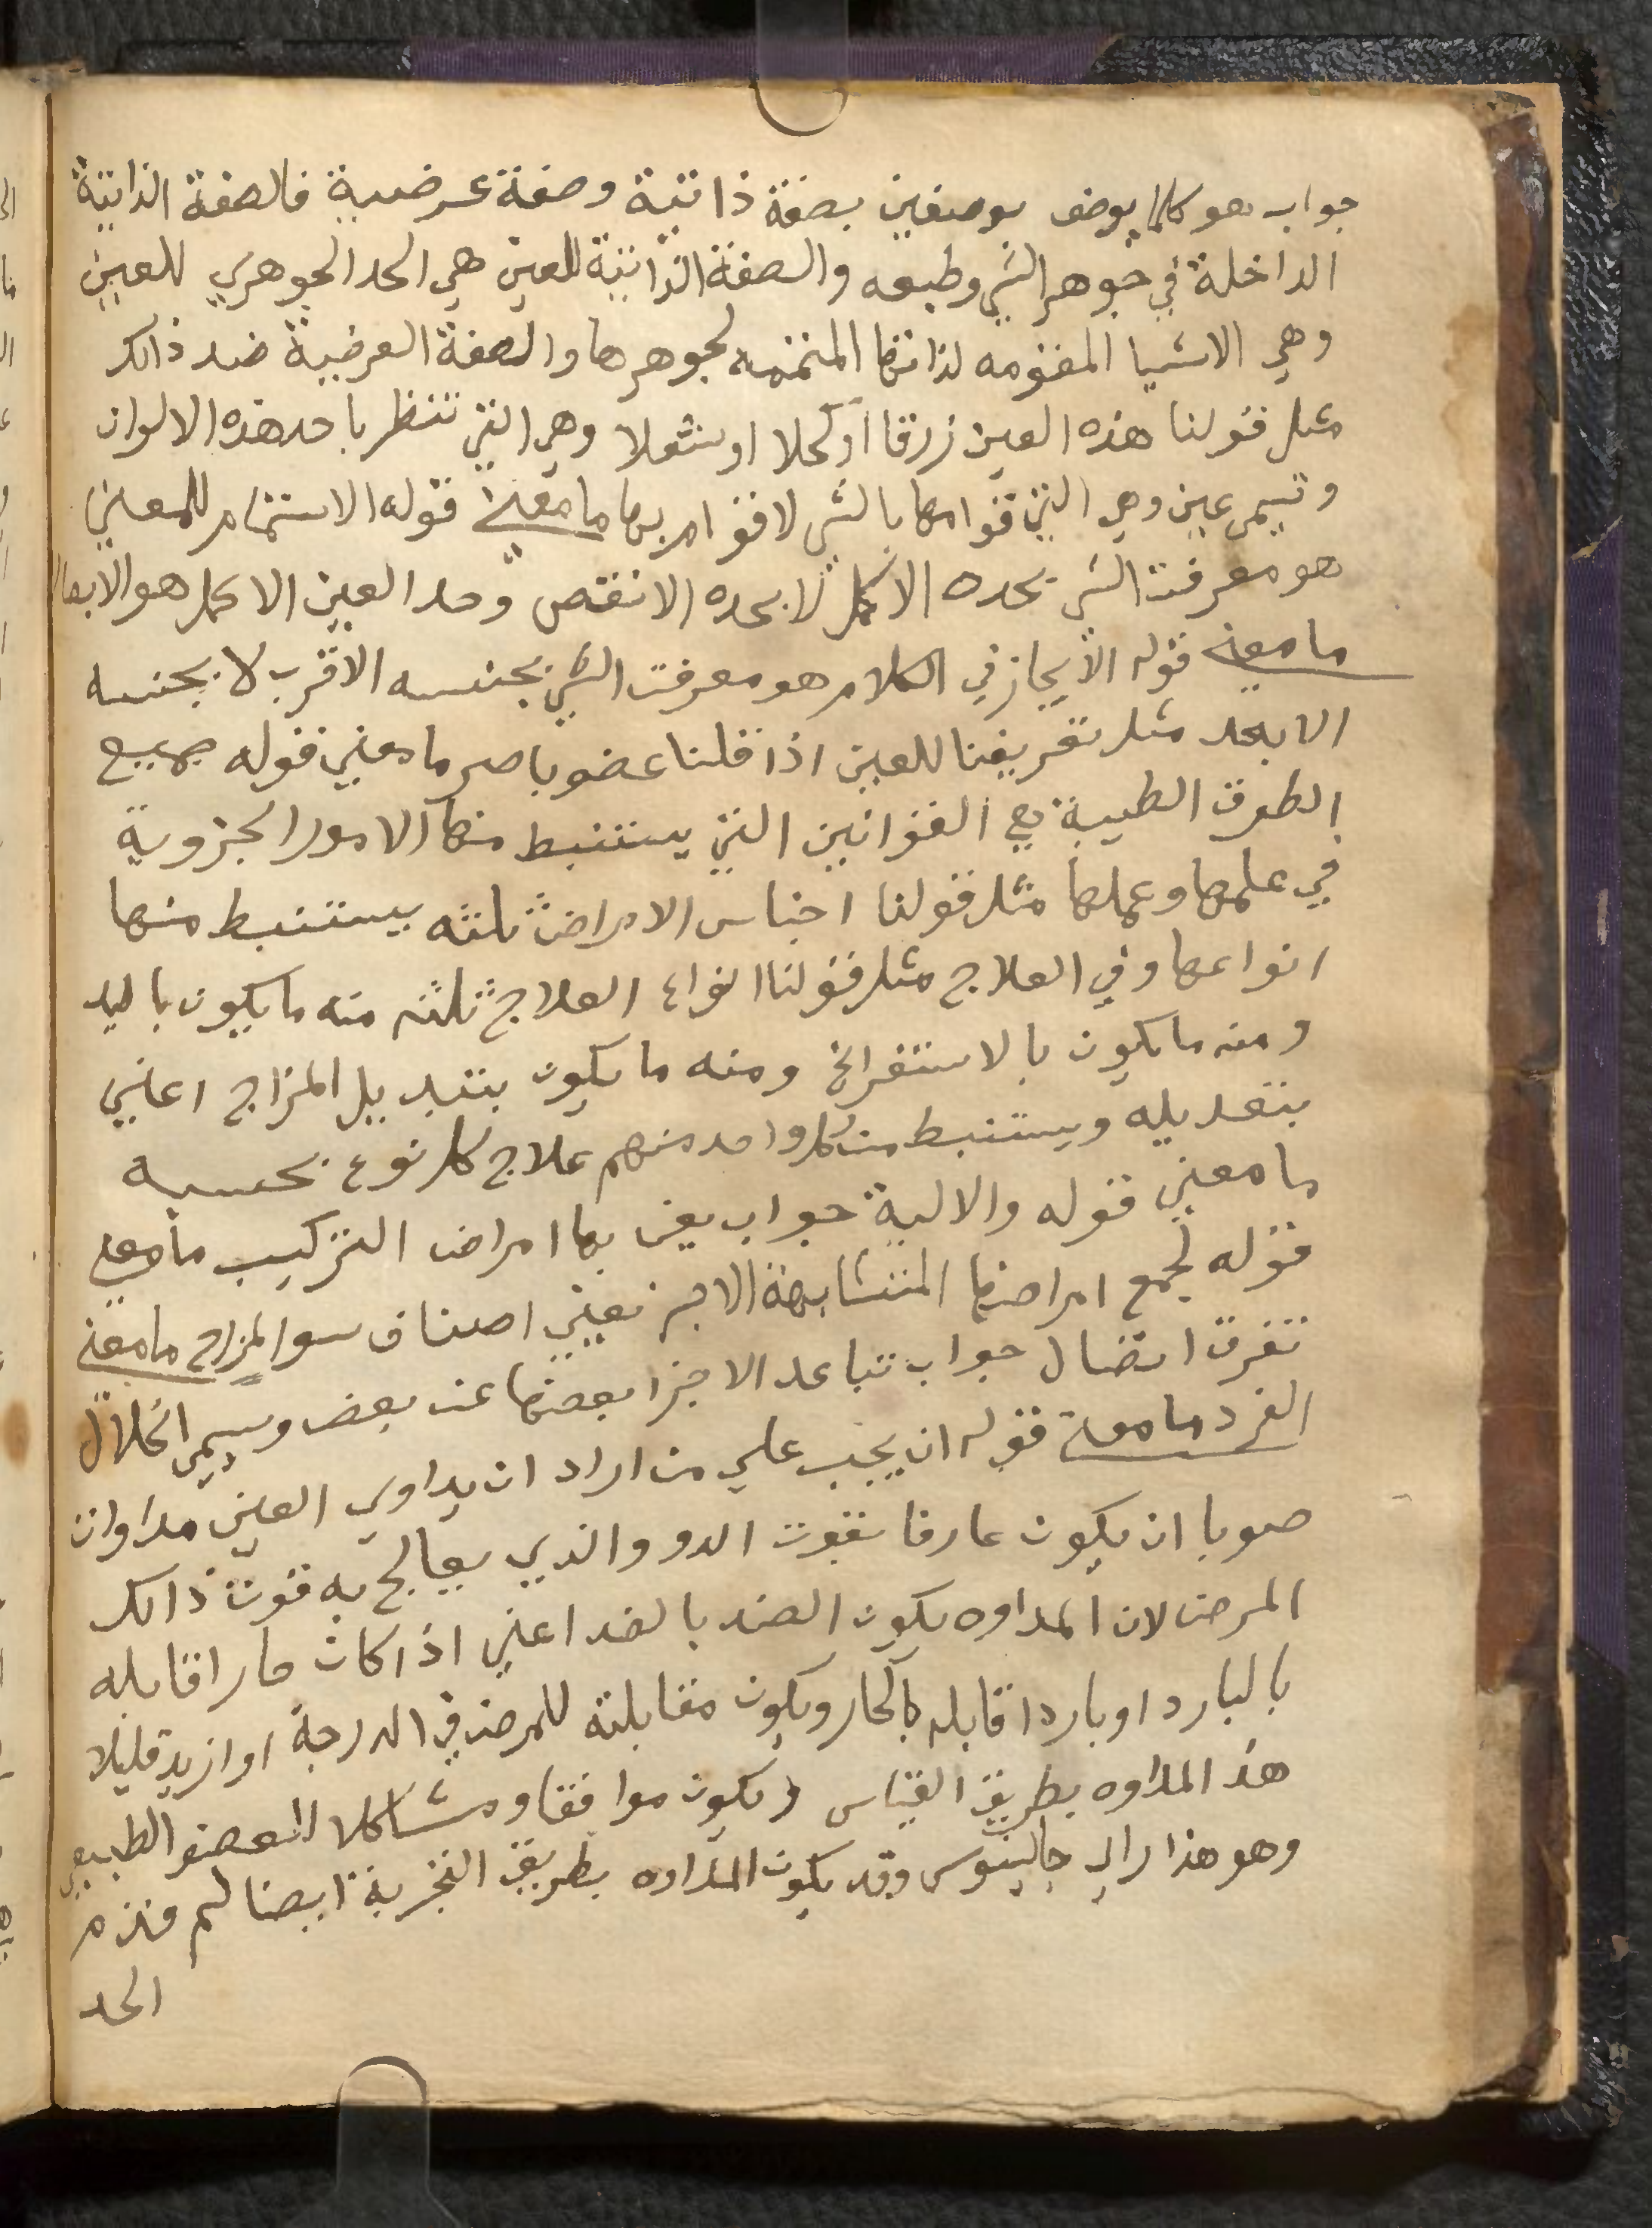 جواب هو كلما يوصف بوصفين بصفة ذاتية وصفة عرضية فالصفة الذاتية
الداخلة في جوهر الشي وطبعه والصفة الذاتية للعين هي الحد الجوهري للعين
وهي الاشيا المقومه لذاتها المتممه لجوهرها والصفة العرضية ضد ذالك
مثل قولنا هذه العين زرقا او كحلا او شعلا وهي التي تنظر باحد هذه الالوان
وتسمى عين وهي التي قوامها بالشي لا قوام بها ما معني قوله الاستتمام للمعني
هو معرفت الشي بحده الاكمل لا بحده الانقص وحد العين الاكمل هو الابصار
ما معني قوله الايجاز في الكلام هو معرفت الشي بجنسه الاقرب لا بجنسه
الابعد مثل تعريفنا للعين اذا قلنا عضو باصر ما معني قوله جميع
الطرق الطبية هي القوانين التي يستنبط منها الامور الجزوية
في علمها وعملها مثل قولنا اجناس الامراض ثلثه يستنبط منها
انواعها وفي العلاج مثل قولنا انواع العلاج ثلثه منه ما يكون باليد
ومنه ما يكون بالاستفراغ ومنه ما يكون بتبديل المزاج اعني
بتعديله ويستنبط من كل واحد منهم علاج كل نوع بحسبه
ما معني قوله والالية جواب يعني بها امراض التركيب ما معني
قوله لجمع امراضها المتشابهة الاجز نعيني اصناف سوا لمزاج ما معني
تفرق اتصال جواب تباعد الاجزا بعضها عن بعض ويسمى انحلال
الفرد ما معني قوله ان يجب علي من اراد ان يداوي العين مداوات
صوبا ان يكون عارفا بقوت الدوو الذي يعالج به قوت ذالك
المرض لان المداوه يكون الضد بالضد اعني اذا كان حارا قابله
بالبارد او باردا قابله بالحار ويكون مقابلته للمرض في الدرجة او ازيد قليلا
هذا المداوه بطريق القياس ويكون موافقا ومشاكلا للعضو الطبيعي
وهو هذا راي جالينوس وقد يكون المداوه بطريق التجربة ايضا لم
الحد